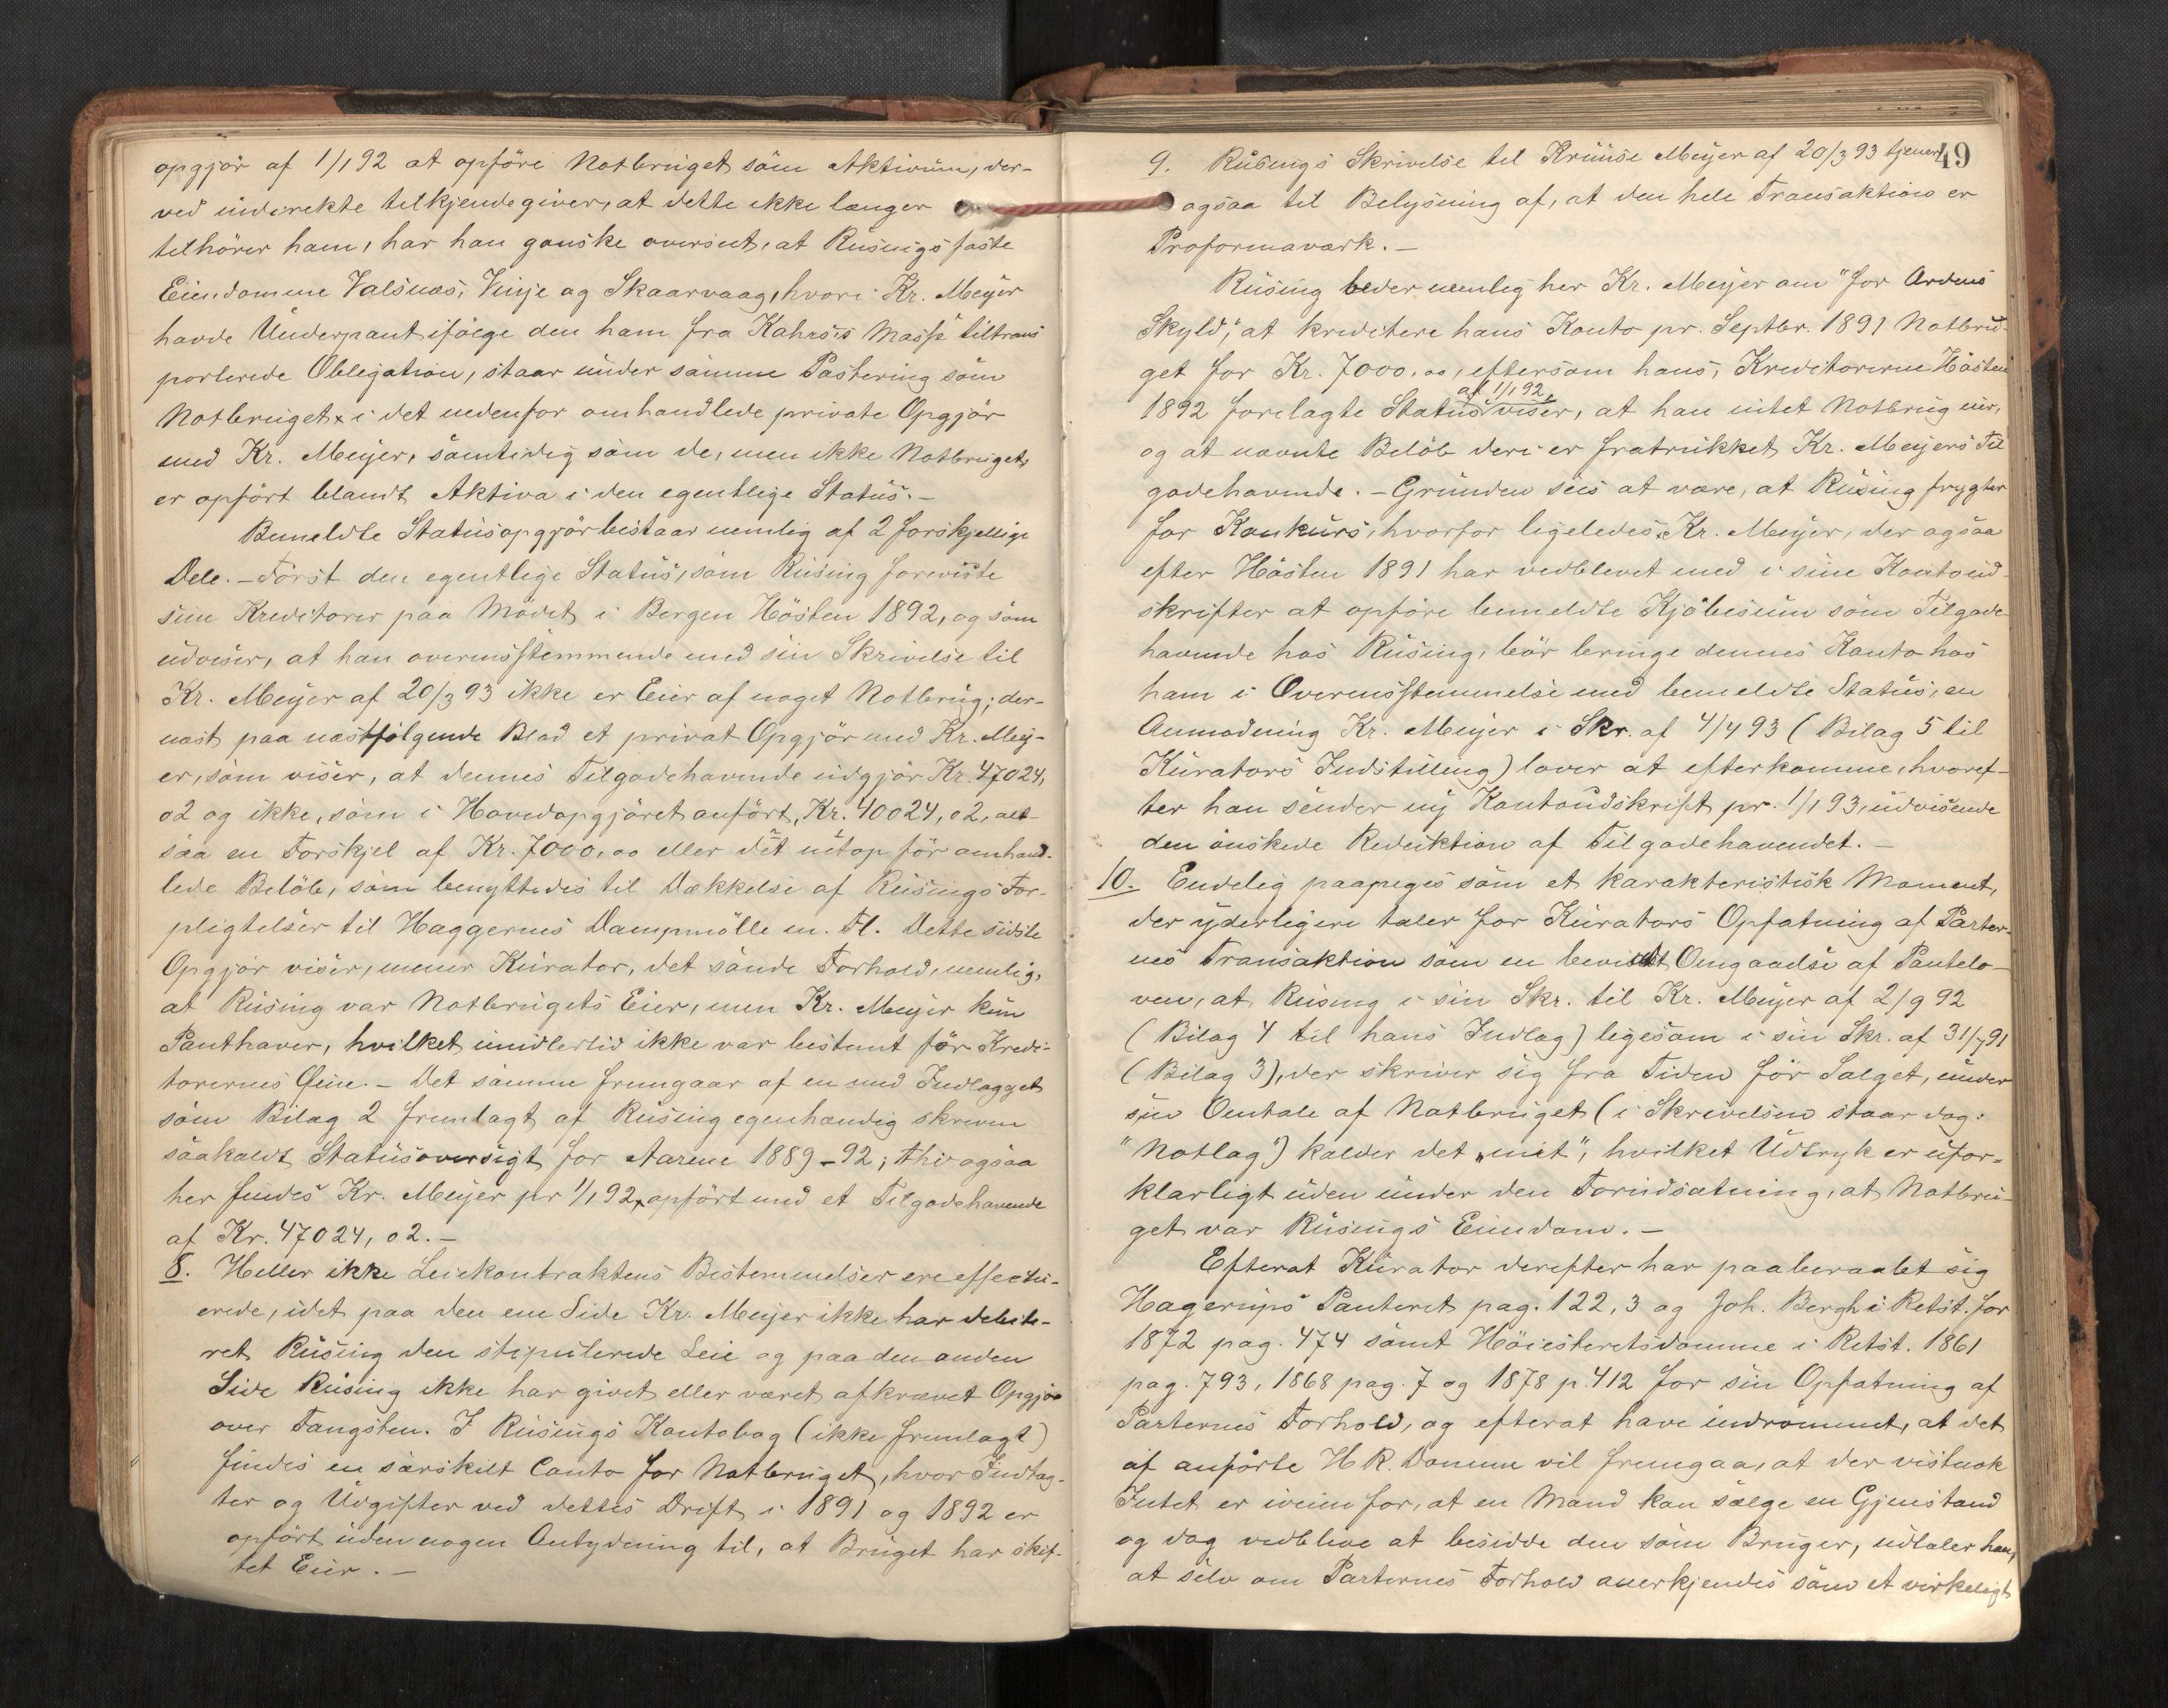 opgjör af 1/1 92 at opföre Notbruget som Aktivum, der-
ved indirekte tilkjendegiver, at dette ikke længer
tilhörer ham, har han ganske overseet, at Rüsings faste
Eiendomme Valsnes, Vinje og Skaarvaag, hvori Kr. Meyer
havde Underpant ifölge den ham fra Kahrs's Masse tiltrans
porterede Obligation, staar under samme Postering som
Notbruget i det nedenfor omhandlede private Opgjör
med Kr. Meyer, samtidig som de, men ikke Notbruget,
er opfört blandt Aktiva i den egentlige Status.-
Bemeldte Statusopgjör bestaar nemlig af 2 forskjellige
Dele. - Först den egentlige Status, som Rüsing foreviste
sine Kreditorer paa Mödet i Bergen Hösten 1892, og som
udviser, at han overensstemmende med sin Skrivelse til
Kr. Meyer af 20/3 93 ikke er Eier af noget Notbrug; der-
næst paa næstfölgende Blad et privat Opgjör med Kr. Mey-
er, som viser, at dennes Tilgodehavende udgjör Kr. 47024,
02 og ikke, som i Hovedopgjöret anfört, Kr. 40024,02, alt-
saa en Forskjel af Kr. 7000,00 eller det netop för omhand-
lede Belöb, som benyttedes til Dækkelse af Rüsings For-
pligtelser til Haggernes Dampmölle m. Fl. Dette sidste
Opgjör viser, mener Kurator, det sande Forhold, nemlig,
at Rüsing var Notbrugets Eier, men Kr. Meyer kun
Panthaver, hvilket imidlertid ikke var bestemt för Kredi-
torernes Øine. - Det samme fremgaar af en med Indlægget
som Bilag 2 fremlagt af Rüsing egenhændig skreven
saakaldt Statusoversigt for Aarene 1889-92; thi ogsaa
her findes Kr. Meyer pr 1/1 92 opfört med et Tilgodehavende
af Kr. 47024,02.-
8. Heller ikke Leiekontraktens Bestemmelser ere effectu-
erede, idet paa den ene Side Kr. Meyer ikke har debite-
ret Rüsing den stipulerede Leie og paa den anden
Side Rüsing ikke har givet eller været afkrævet Opgjör
over Fangsten. I Rüsings Kontobog (ikke fremlagt)
findes en særskilt Conto for Notbruget, hvor Indtæg-
ter og Udgifter ved dettes Drift i 1891 og 1892 er
opfört uden nogen Antydning til, at Bruget har skif-
tet Eier.-
49
9. Rüsings Skrivelse til Kruuse Meyer af 20/3 93 tjener
ogsaa til Belysning af, at den hele Transaktion er
Proformaværk.-
Rüsing beder nemlig her Kr. Meyer om "for Ordens
Skyld", at kreditere hans Konto pr. Septbr. 1891 Notbru-
get for Kr. 7000,00, eftersom hans, Kreditorerne Hösten
1892 forelagte Status af 1/1 92, viser, at han intet Notbrug eier,
og at nævnte Belöb deri er fratrukket Kr. Meyers Til
godehavende. - Grunden sees at være, at Rüsing frygter
for Konkurs, hvorfor ligeledes Kr. Meyer, der ogsaa
efter Hösten 1891 har vedblevet med i sine Kontoud-
skrifter at opföre bemeldte Kjöbesum som Tilgode-
havende hos Rüsing, bör bringe dennes Konto hos
ham i Overensstemmelse med bemeldte Status, en
Anmodning Kr. Meyer i Skr. af 4/4 93 (Bilag 5 til
Kurators Indstilling) lover at efterkomme, hvoref-
ter han sender ny Kontoudskrift pr. 1/1 93, udvisende
den önskede Reduktion af Tilgodehavendet.-
10. Endelig paapeges som et karakteristisk Moment,
der yderligere taler for Kurators Opfatning af Parter-
nes Transaktion som en bevidst Omgaaelse af Pantelo-
ven, at Rüsing i sin Skr. til Kr. Meyer af 2/9 92
(Bilag 4 til hans Indlæg) ligesom i sin Skr. af 31/7 91
(Bilag 3), der skriver sig fra Tiden för Salget, under
sin Omtale af Notbruget (i Skrivelsen staar dog:
"Notlag") kalder det "mit", hvilket Udtryk er ufor-
klarligt uden under den Forudsætning, at Notbru-
get var Rüsings Eiendom.-
Efterat Kurator derefter har paaberaabt sig
Hagerups Panteret pag. 122, 3 og Joh. Bergh i Retst. for
1872 pag. 474 samt Höiesteretsdomme i Retst. 1861
pag. 793, 1868 pag. 7 og 1878 p. 412 for sin Opfatning af
Parternes Forhold, og efterat have indrömmet, at det
af anförte H.R. Domme vil fremgaa, at der vistnok
Intet er iveien for, at en Mand kan sælge en Gjenstand
og dog vedblive at besidde den som Bruger, udtaler han,
at selv om Parternes Forhold anerkjendes som et virkeligt